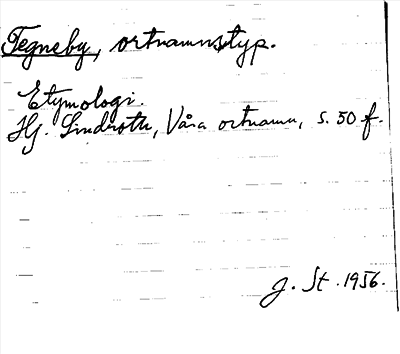 Tegneby, ortnamnstyp.
Etymologi.
Hj. Lindroth, Våra ortnamn, s. 50 f.
J. St. 1956.